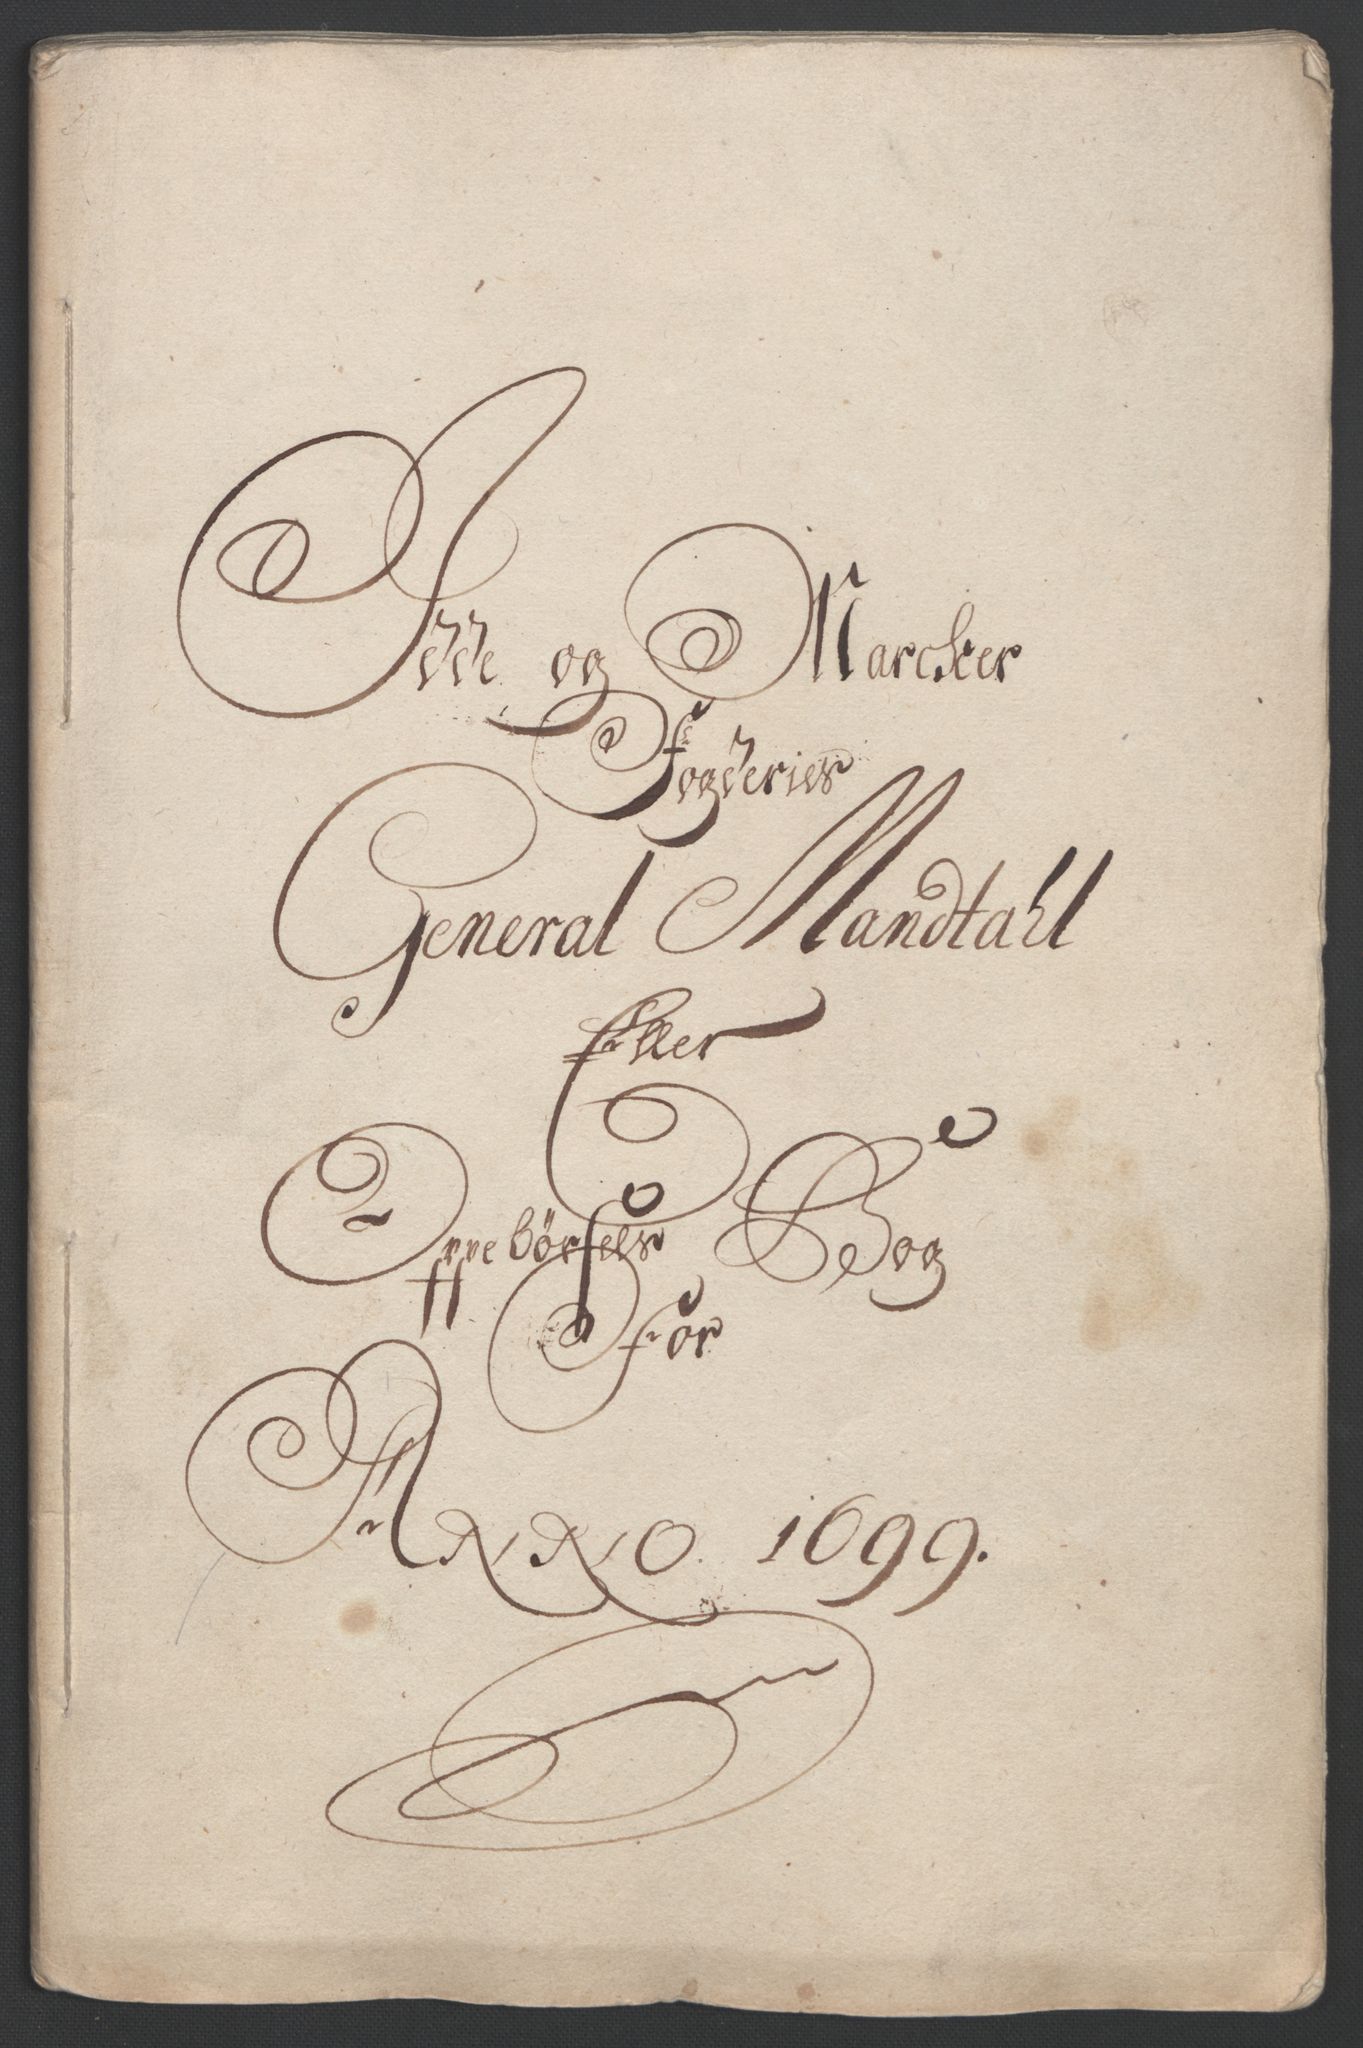 Idde og Marcker
Fogderies
General Mandtahl
Eller
Oppebörsels Bog
For
Anno 1699.